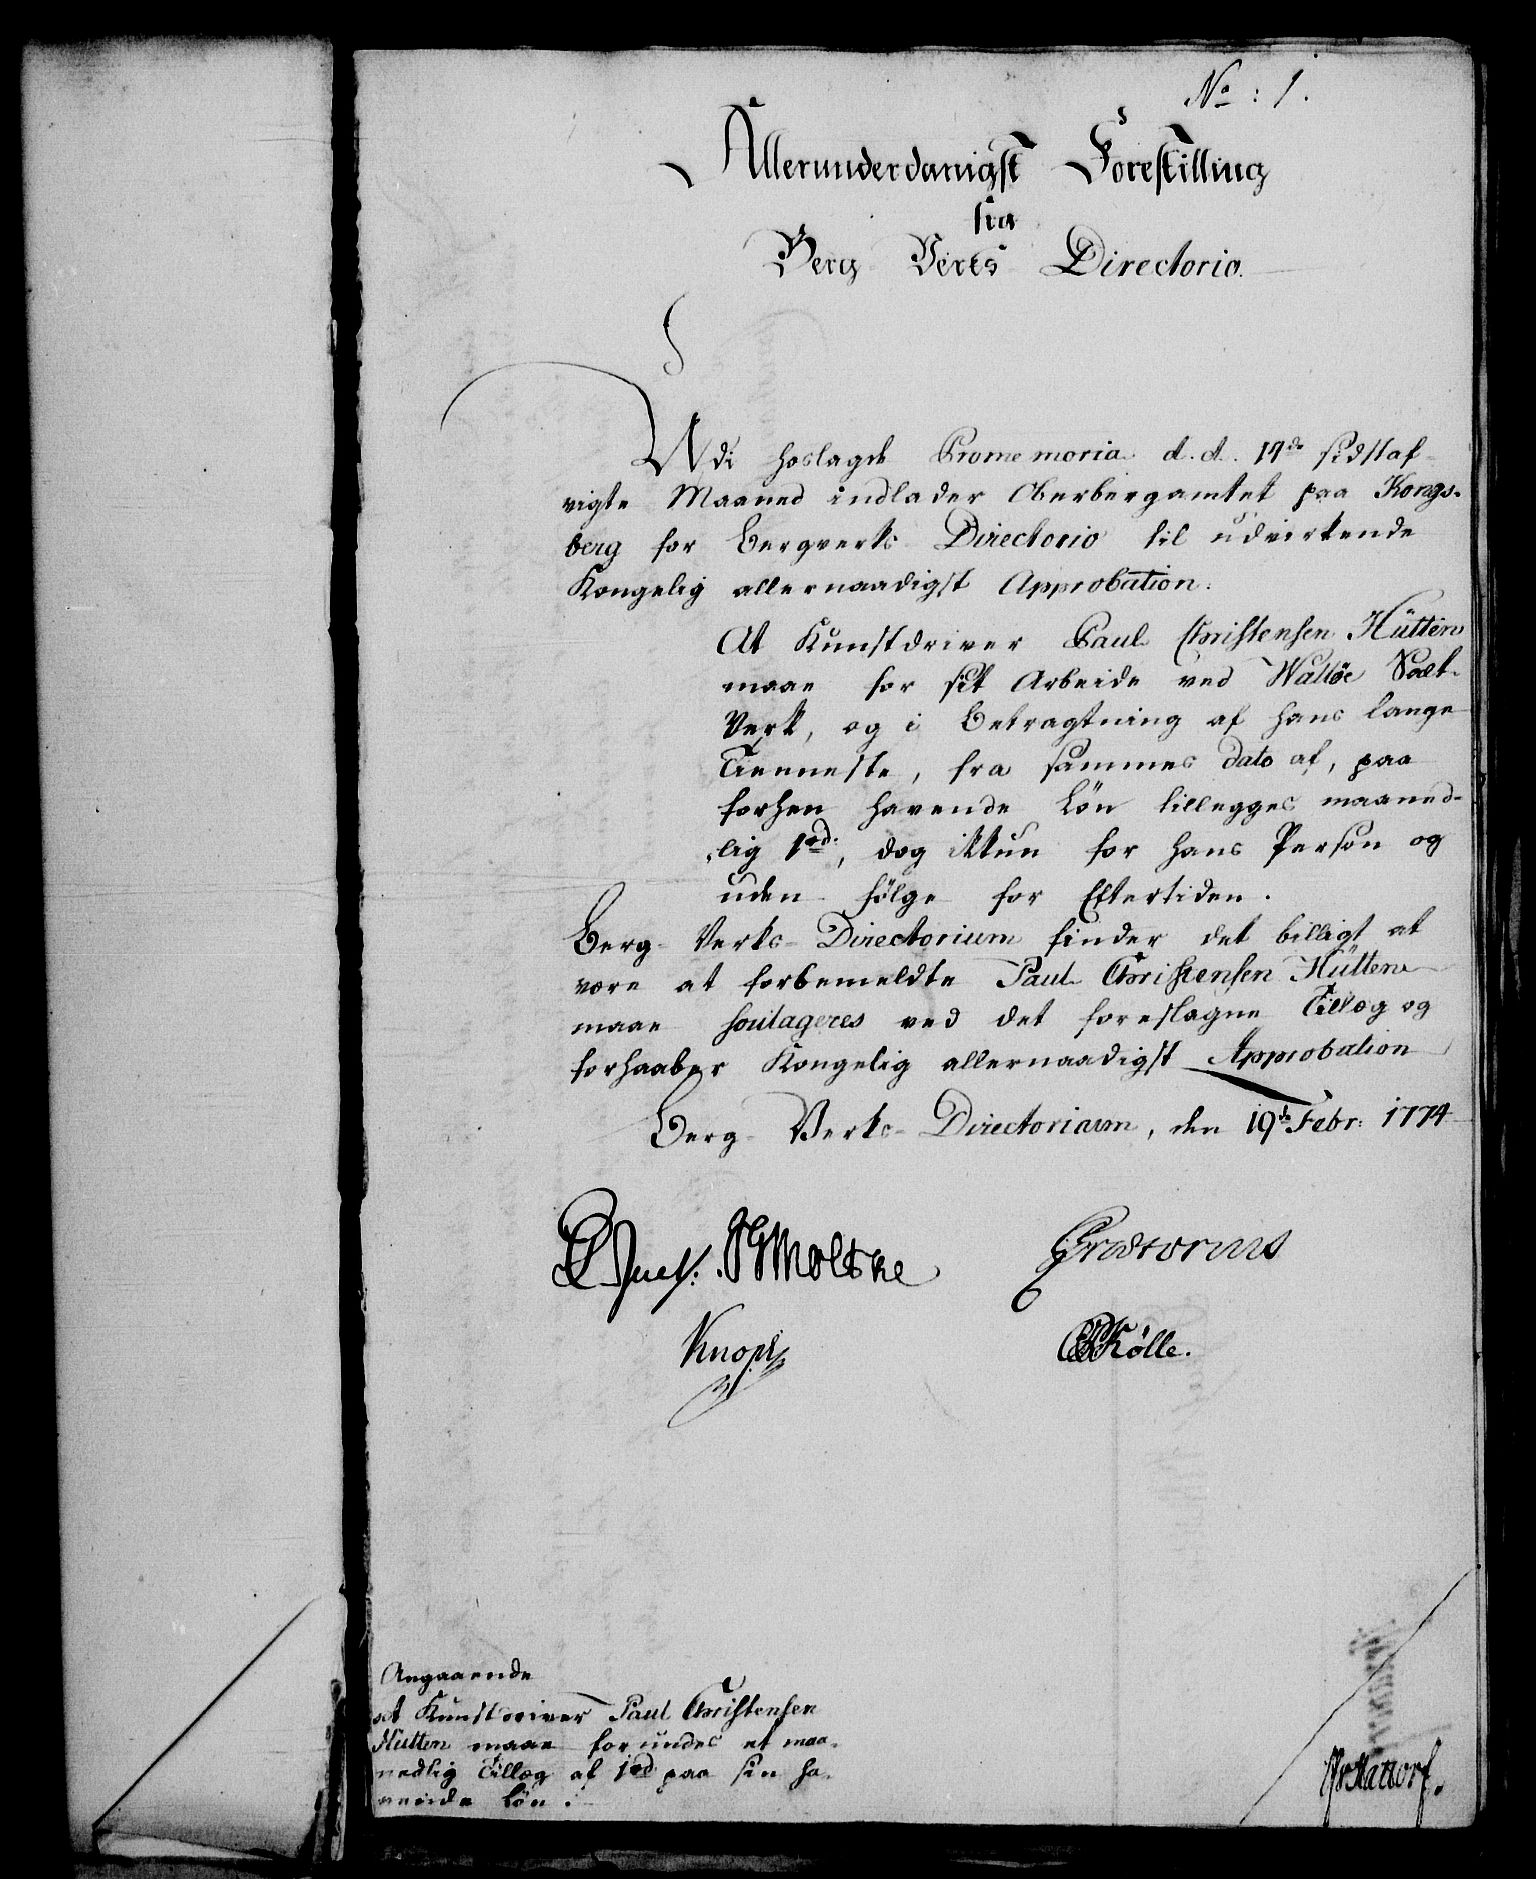 No: 1.
Allerunderdanigst Forestilling
fra
Berg Verks Directorio.
Udi hoslagde Promemoria d. d. 17de sidstaf-
vigte Maaned indlader Oberbergamtet paa Kongs-
berg for Bergverks Directorio til udvirkende
Kongelig allernaadigst Approbation.
At Kunstdriver Paul Christensen Hütten
maae for sit Arbeide ved Walløe Salt-
Verk, og i Betragtning af hans lange
Tienneste, fra sammes dato af, paa
forhen havende Løn tillegges maaned-
lig 1rd., dog ikkun for hans Person og
uden følge for Eftertiden.
Berg-Verks-Directorium finder det billigt at
være at forbemeldte Paul Christensen Hütten
maae soulageres ved det foreslagne Tillæg og
forhaaber Kongelig allernaadigst Approbation
Berg-Verks-Directorium, den 19de Febr: 1774
Moltke Prætorius
Knopf Kölle.
Angaaende
at Kunstdriver Paul Christensen
Hutten maae forundes et maa-
nedlig Tillæg af 1rd paa sin ha-
vende Løn.
Hattorf.